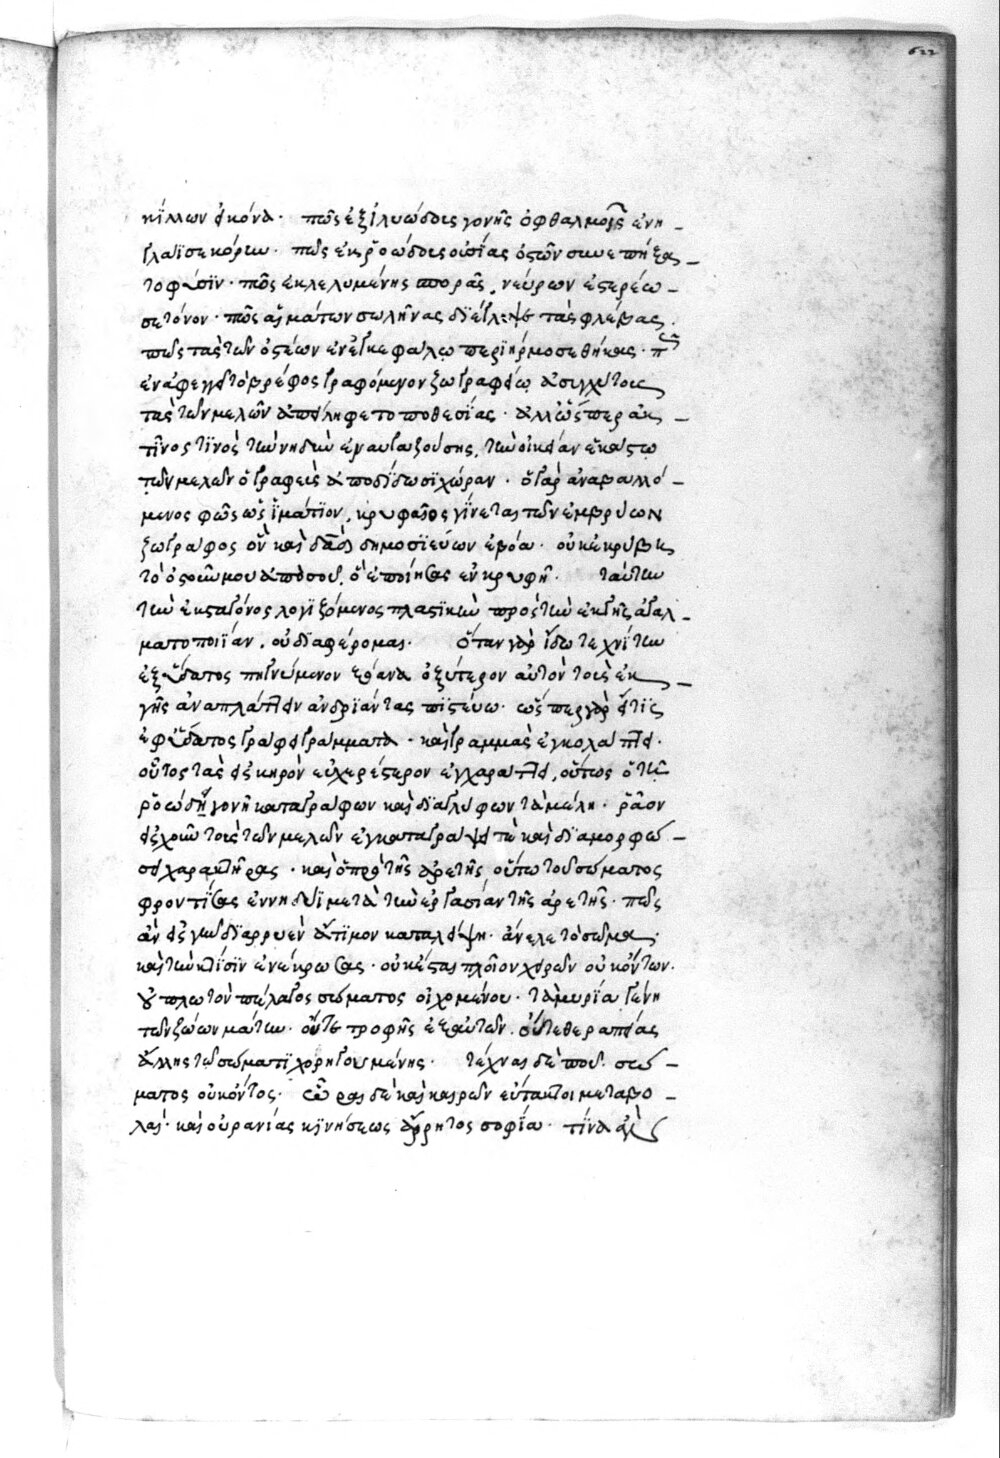 622
κΐλλων εἰκόνα. πῶς ἐξ ἰλυώδεις γονῆς ὀφθαλμοῖς ἐνη
γλαϊσε κόρην. πῶς ἐκ ῥοώδεις οὐσίας ὀστῶν συνεπήξα
το φύσϊν. πῶς ἐκλελυμένης σπορᾶς, νεύρων ἐστερέω
σε τόνον. πῶς αἱμάτων σωλῆνας διέγλυψε τὰς φλέβας.
πῶς τὰς τῶν ὀστέων ἐνεγκεφάλω περιήρμοσε θήκας. πῶς
ἐν ἀφεγγεῖ τὸ βρέφος γραφόμενον ζωγραφείω ἀσυγχύτοις
τὰς τῶν μελῶν ἀπείληφε τοποθεσίας. ἀλλ' ὥσπερ ἀκ
τῖνος τϊνὸς τὴν νηδὺν ἐναυγαζούσης, τὴν οἰκείαν ἑκάστω
τῶν μελῶν ὁ γραφεὺς ἀποδίδωσϊ χώραν. ὁ γὰρ ἀναβαλλό
μενος φῶς ὡς ἱμάτϊον, κρυφαῖος γίνεται τῶν ἐμβρύων
ζωγράφος ὃν καὶ δᾱδ δημοσϊεύων ἐβόα. οὐκ ἐκρύβη
τὸ ὀστοῦν μου ἀπὸ σοῦ, ὃ ἐποίησας ἐν κρυφῆ. ταύτην
τὴν ἐκ σταγόνος λογϊζόμενος πλαστϊκὴν πρὸς τὴν ἐκ γῆς ἀγαλ
ματοποιΐαν, οὐ διαφέρομαι. ὅταν γὰρ ἴδω τεχνίτην
ἐξ ὕδατος πηγνύμενον ξόανα ὀξύτερον αὐτὸν τοῖς ἐκ
γῆς ἀναπλάττειν ἀνδρϊάντας πϊστεύω. ὥσπερ γὰρ εἴ τις
ἐφ' ὕδατος γράφει γράμματα. καὶ γραμμὰς ἐγκολάπτει.
οὗτος τὰς εἰς κηρὸν εὐχερέστερον ἐγχαράττει, οὕτως ὁ τῆ
ῥοώδει γονῆ καταγράφων καὶ διαγλύφων τὰ μέλη. ῥᾶον
εἰς χοῦν τοὺς τῶν μελῶν ἐγκαταγράψει τε καὶ διαμορφώ
σει χαρακτῆρας. καὶ ὁ πρὸ τῆς ἀρετῆς οὕτω τοῦ σώματος
φροντίσας ἐν νηδύϊ μετὰ τὴν ἐργασίαν τῆς ἀρετῆς. πῶς
ἂν εἰς γῆν διαρρυὲν ἄτϊμον καταλείψη. ἄνελε τὸ σῶμα,
καὶ τὴν κτίσϊν ἐνέκρωσας. οὐκ ἔσται πλοῖον χειρῶν οὐκ ὄντων.
οὐ πλωτὸν πέλαγος σώματος οἰχομένου. τὰ μυρία γένη
τῶν ζώων μάτην. οὔτε τροφῆς ἐξ αὐτῶν. οὔτε θεραπείας
ἄλλης τῶ σώματϊ χορηγουμένης. τέχναι δὲ ποῦ. σώ
ματος οὐκ ὄντος. ὡρῶν δὲ καὶ καιρῶν εὔτακτοι μεταβο
λαί. καὶ οὐρανίας κϊνήσεως ἄρρητος σοφία. τίνα